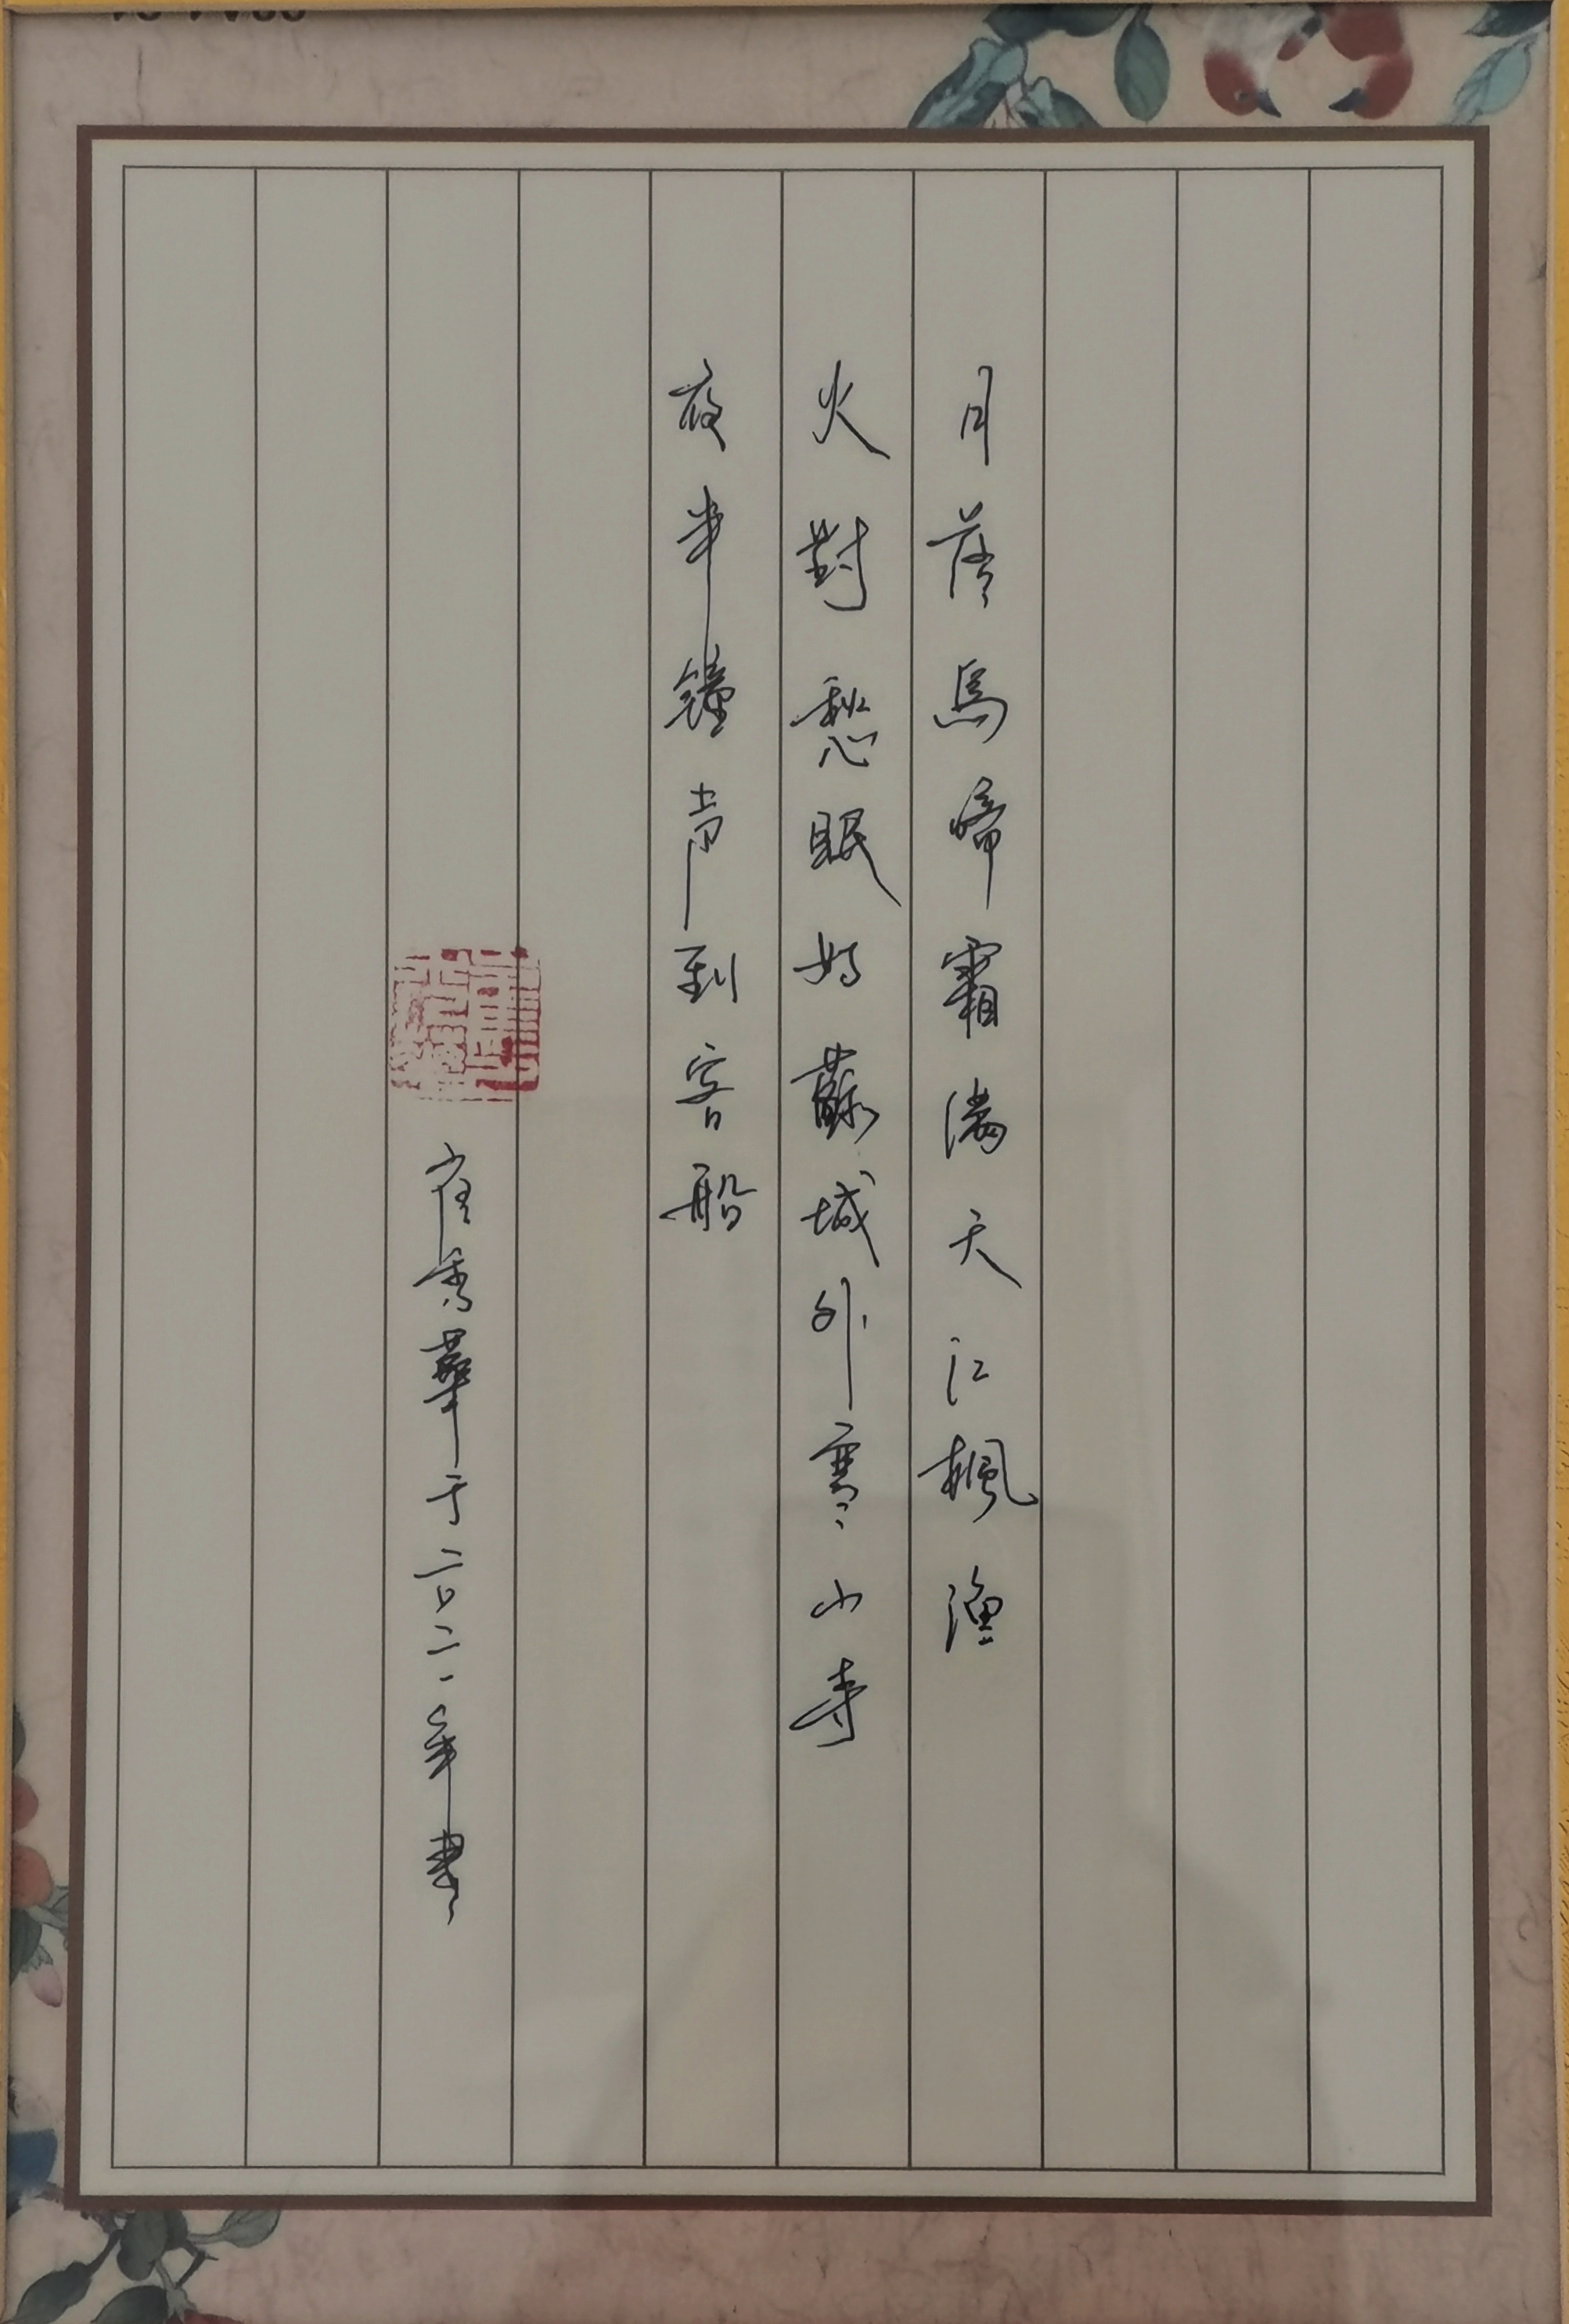 月落烏啼霜滿天江楓漁
火對愁眠姑蘇城外寒山寺
夜半鐘声到客船
崔秀華于二〇二一年書